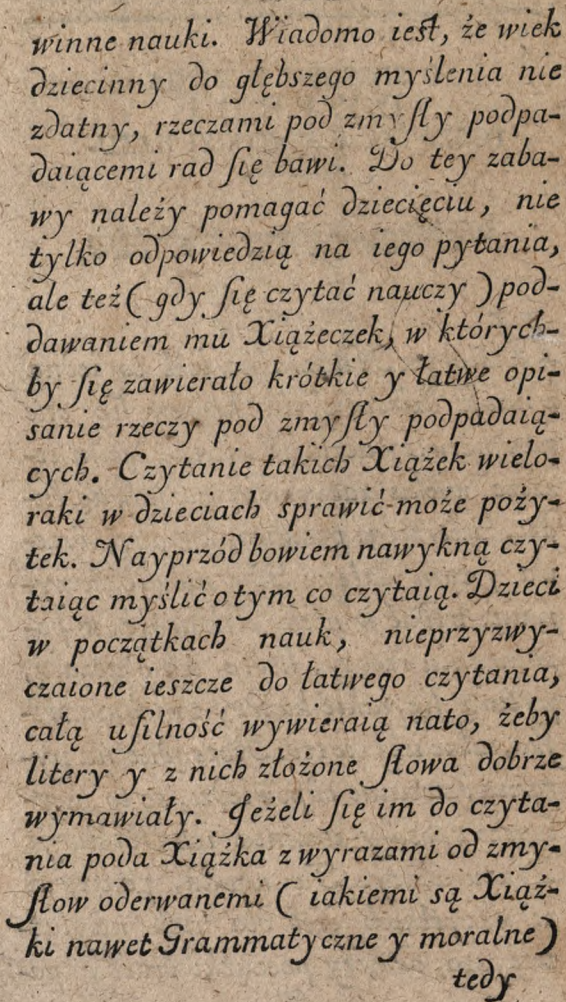 winne nauki. Wiadomo ieſt, że wiek
dziecinny do głębszego myślenia nie
zdatny, rzeczami pod zmyſły podpa-
daiącemi rad ſię bawi. Do tey zaba-
wy należy pomagać dziecięciu, nie
tylko odpowiedzią na iego pytania,
ale też ( gdy ſię czytać nauczy ) pod-
dawaniem mu Xiążeczek, w których-
by ſię zawierało krótkie y łatwe opi-
sanie rzeczy pod zmyſły podpadaią-
cych. Czytanie takich Xiążek wielo-
raki w dzieciach sprawić może poży-
tek. Nayprzód bowiem nawykną czy-
taiąc myślić o tym co czytaią. Dzieci
w początkach nauk, nieprzyzwy-
czaione ieszcze do łatwego czytania,
całą uſilność wywieraią nato, żeby
litery y z nich złożone ſłowa dobrze
wymawiały. Jeżeli ſię im do czyta-
nia poda Xiążka z wyrazami od zmy-
ſłow oderwanemi ( iakiemi są Xiąż-
ki nawet Grammatyczne y moralne )
tedy